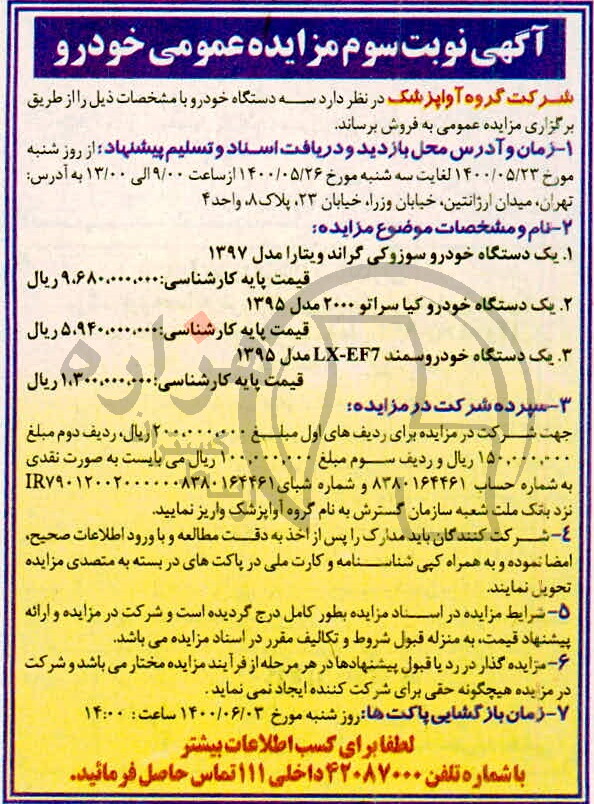 آگهی نوبت سوم مزایده عمومی خودرو
شرکت گروه آواپزشک در نظر دارد سه دستگاه خودرو با مشخصات ذیل را از طریق
برگزاری مزایده عمومی به فروش برساند.
۱-زمان و آدرس محل بازدید و دریافت اسناد و تسلیم پیشنهاد: از روز شنبه
مورخ ۱۴۰۰/۰۵/۲۳ لغایت سه شنبه مورخ ۱۴۰۰/۰۵/۲۶ از ساعت ۹/۰۰ الی ۱۳/۰۰ به آدرس:
تهران، میدان آرژانتین، خیابان وزرا، خیابان ۲۳، پلاک ۸، واحد ۴
۲-نام و مشخصات موضوع مزایده:
۱. یک دستگاه خودرو سوزوکی گراند ویتارا مدل ۱۳۹۷
قیمت پایه کارشناسی: ۹،۶۸۰،۰۰۰،۰۰۰ ریال
۲. یک دستگاه خودرو کیا سراتو ۲۰۰۰ مدل ۱۳۹۵
قیمت پایه کارشناسی: ۵،۹۴۰،۰۰۰،۰۰۰ ریال
۳. یک دستگاه خودرو سمند LX-EF7 مدل ۱۳۹۵
قیمت پایه کارشناسی: ۱،۳۰۰،۰۰۰،۰۰۰ ریال
۳-سپرده شرکت در مزایده:
جهت شرکت در مزایده برای ردیف های اول مبلغ ۲۰۰،۰۰۰،۰۰۰ ریال، ردیف دوم مبلغ
۱۵۰,۰۰۰,۰۰۰ ریال و ردیف سوم مبلغ ۱۰۰,۰۰۰,۰۰۰ ریال می بایست به صورت نقدی
به شماره حساب ۸۳۸۰۱۶۴۴۶۱ و شماره شبای IR۷۹۰۱۲۰۰۲۰۰۰۰۰۰۸۳۸۰۱۶۴۴۶۱
نزد بانک ملت شعبه سازمان گسترش به نام گروه آواپزشک واریز نمایید.
۴-شرکت کنندگان باید مدارک را پس از اخذ به دقت مطالعه و با ورود اطلاعات صحیح،
امضا نموده و به همراه کپی شناسنامه و کارت ملی در پاکت های در بسته به متصدی مزایده
تحویل نمایند.
۵-شرایط مزایده در اسناد مزایده بطور کامل درج گردیده است و شرکت در مزایده و ارائه
پیشنهاد قیمت، به منزله قبول شروط و تکالیف مقرر در اسناد مزایده می باشد.
۶-مزایده گذار در رد یا قبول پیشنهادها در هر مرحله از فرآیند مزایده مختار می باشد و شرکت
در مزایده هیچگونه حقی برای شرکت کننده ایجاد نمی نماید.
۷-زمان بازگشایی پاکت ها: روز شنبه مورخ ۱۴۰۰/۰۶/۰۳ ساعت: ۱۴:۰۰
لطفا برای کسب اطلاعات بیشتر
با شماره تلفن ۴۲۰۸۷۰۰۰ داخلی ۱۱۱ تماس حاصل فرمائید.
هزاره